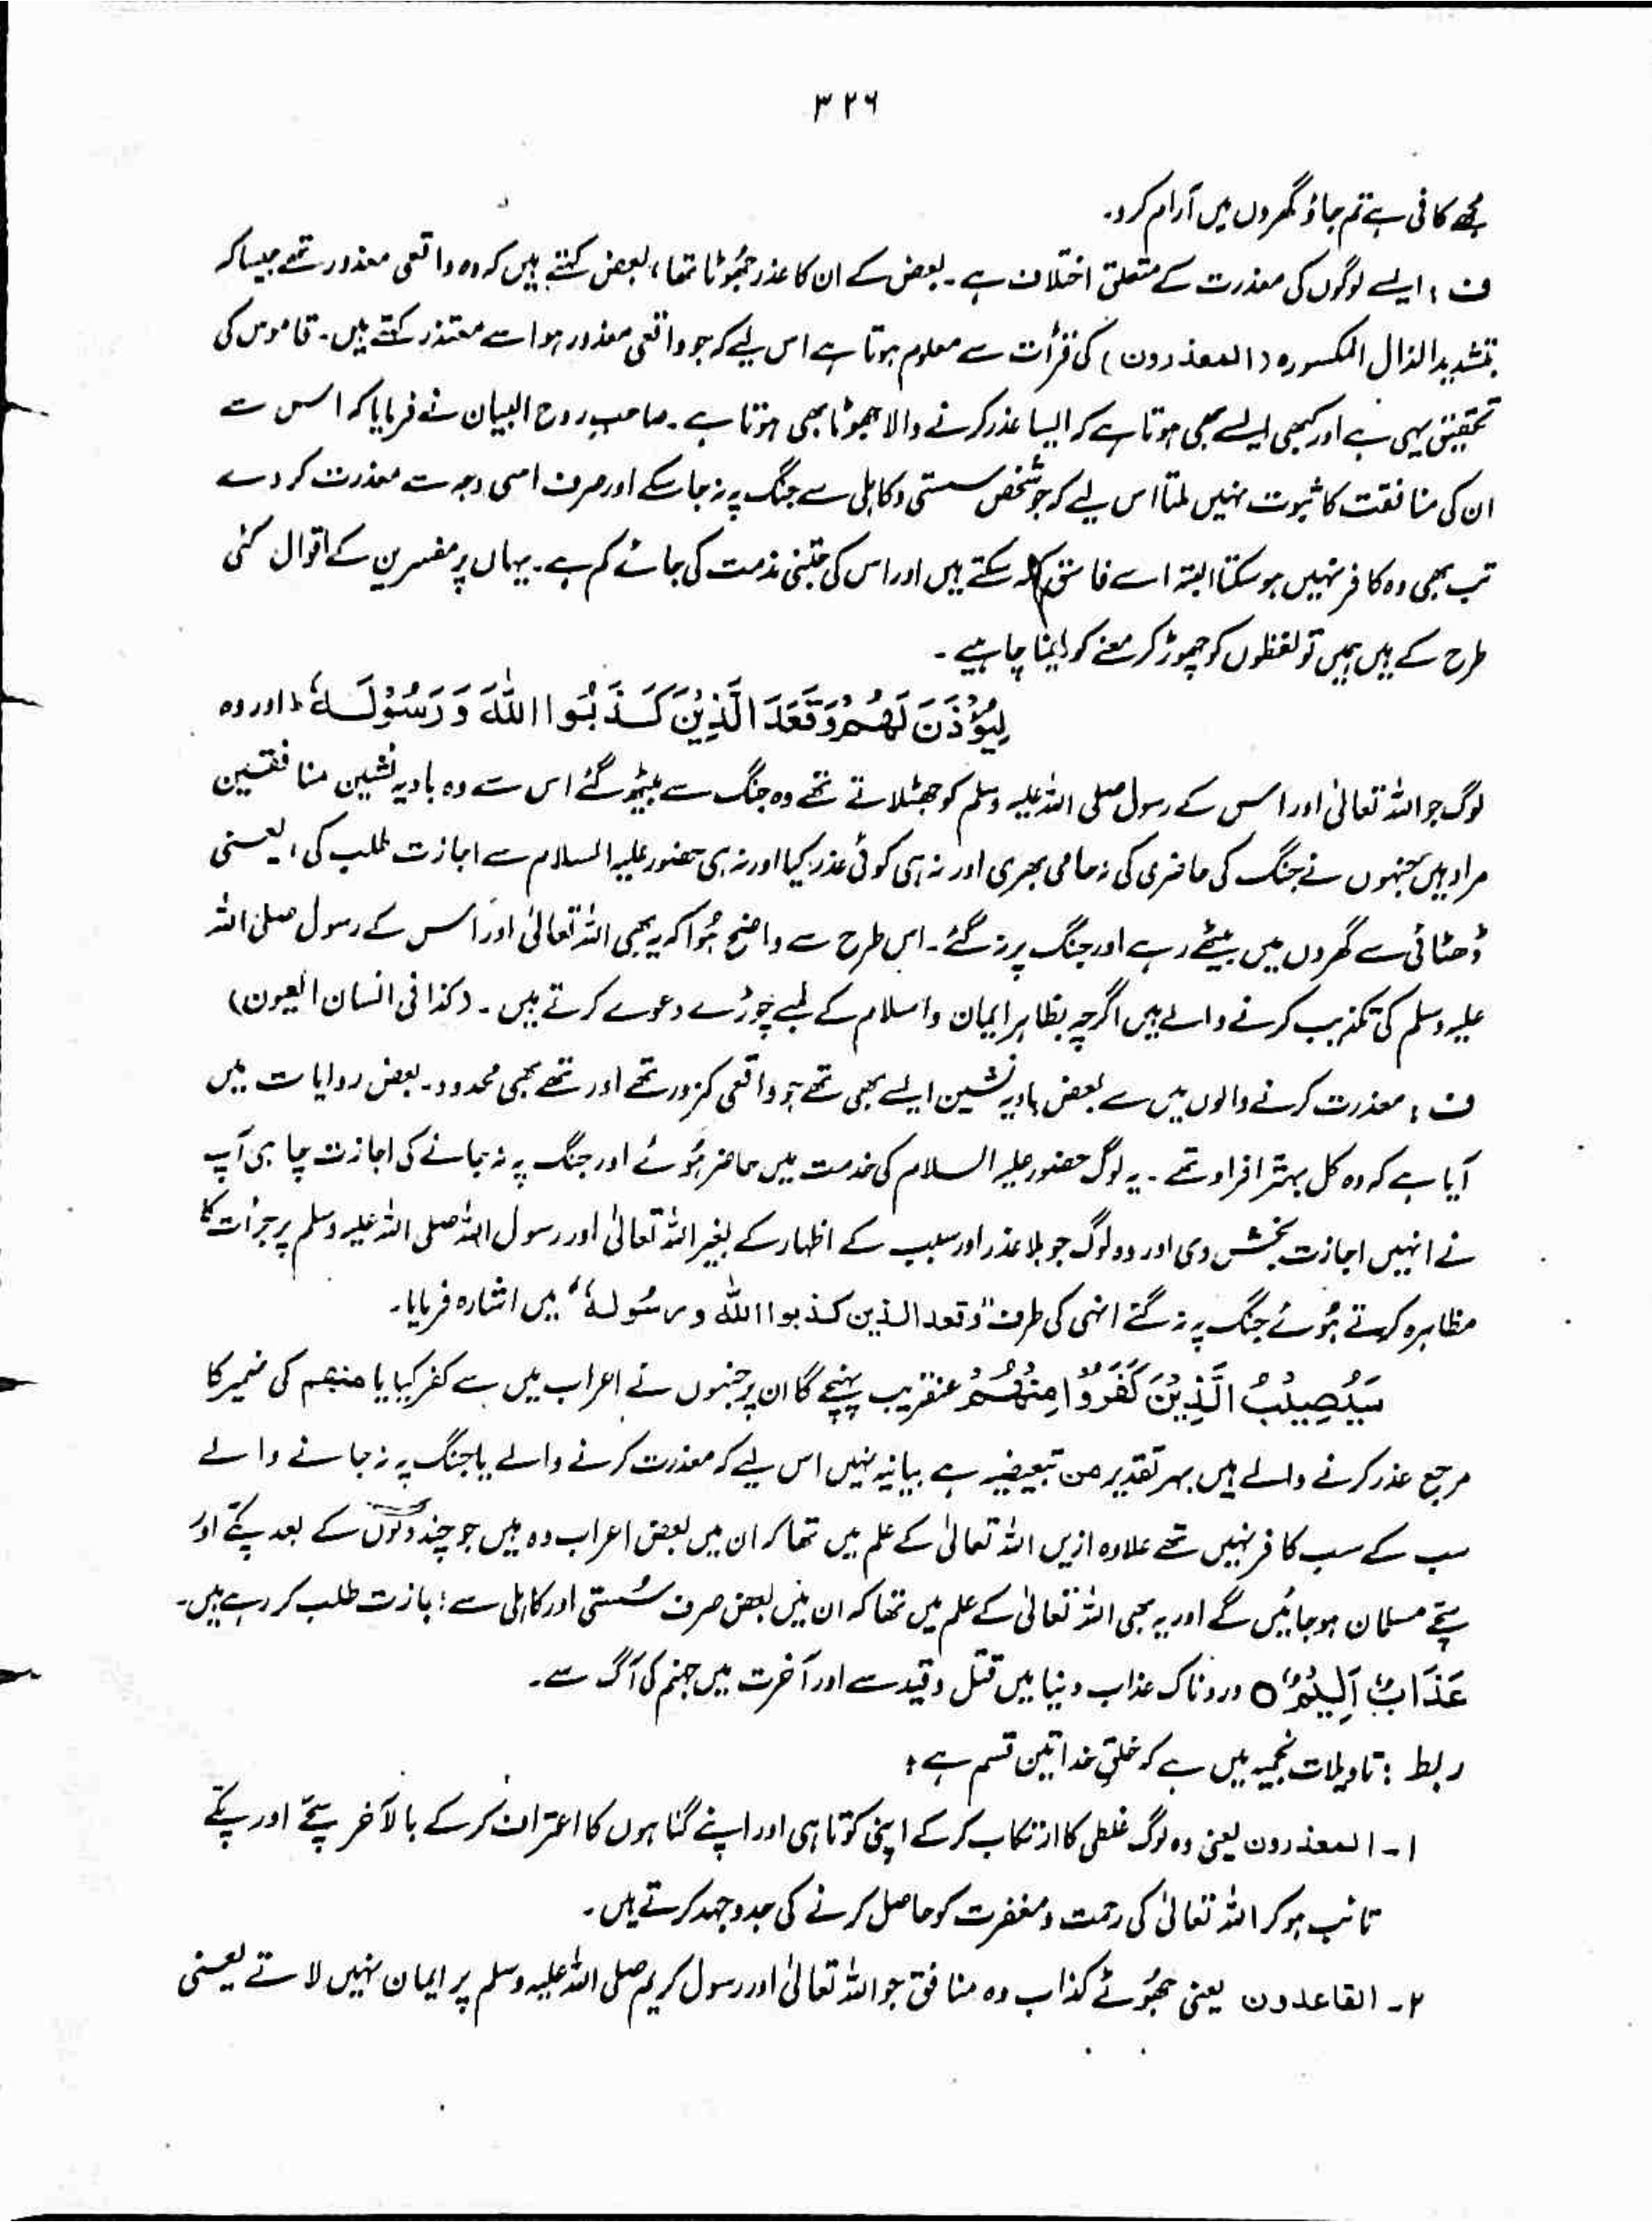 ۳۲۶
مجھے کافی ہے تم جاؤ گھروں میں آرام کرو۔
ف : ایسے لوگوں کی معذرت کے متعلق اختلاف ہے ۔ بعض کے ان کا عذر جھوٹا تھا ، بعض کہتے ہیں کہ وہ واقعی معذور تھے جیسا کہ
بتشدید الذال المکسورہ (المعذرون) کی قرأت سے معلوم ہوتا ہے اس لیے کہ جو واقعی معذور ہو اسے معتذر کہتے ہیں۔ قاموس کی
تحقیق یہی ہے اور کبھی ایسے بھی ہوتا ہے کہ ایسا عذر کرنے والا جھوٹا بھی ہوتا ہے ۔ صاحب روح البیان نے فرمایا کہ اس سے
ان کی منافقت کا ثبوت نہیں ملتا اس لیے کہ جو شخص سستی و کاہلی سے جنگ پہ نہ جا سکے اور صرف اسی وجہ سے معذرت کر دے
تب بھی وہ کافر نہیں ہو سکتا البتہ اسے فاسق کہہ سکتے ہیں اور اس کی جتنی مذمت کی جائے کم ہے ۔ یہاں پر مفسرین کے اقوال کئی
طرح کے ہیں ہمیں تو لفظوں کو چھوڑ کر معنے کو لینا چاہیے ۔
لِيُؤْذَنَ لَهُمْ وَقَعَدَ الَّذِيْنَ كَذَبُوا اللّٰهَ وَرَسُوْلَهٗ ؕ اور وہ
لوگ جو اللہ تعالیٰ اور اس کے رسول صلی اللہ علیہ وسلم کو جھٹلاتے تھے وہ جنگ سے بیٹھ گئے اس سے وہ بادیہ نشین منافقین
مراد ہیں جنہوں نے جنگ کی حاضری کی نہ حامی بھری اور نہ ہی کوئی عذر کیا اور نہ ہی حضور علیہ السلام سے اجازت طلب کی ، یعنی
ڈھٹائی سے گھروں میں بیٹھے رہے اور جنگ پر نہ گئے ۔ اس طرح سے واضح ہُوا کہ یہ بھی اللہ تعالیٰ اور اس کے رسول صلی اللہ
علیہ وسلم کی تکذیب کرنے والے ہیں اگرچہ بظاہر ایمان و اسلام کے لمبے چوڑے دعوے کرتے ہیں ۔ (کذا فی انسان العیون)
ف : معذرت کرنے والوں میں سے بعض بادیہ نشین ایسے بھی تھے جو واقعی کمزور تھے اور تھے بھی محدود ۔ بعض روایات میں
آیا ہے کہ وہ کل بہتر افراد تھے ۔ یہ لوگ حضور علیہ السلام کی خدمت میں حاضر ہُوئے اور جنگ پہ نہ جانے کی اجازت چاہی آپ
نے انہیں اجازت بخش دی اور وہ لوگ جو بلا عذر اور سبب کے اظہار کے بغیر اللہ تعالیٰ اور رسول اللہ صلی اللہ علیہ وسلم پر جرأت کا
مظاہرہ کرتے ہُوئے جنگ پہ نہ گئے انہی کی طرف ”وقعد الذین کذبوا اللّٰہ ورسُولہٗ“ میں اشارہ فرمایا۔
سَيُصِيْبُ الَّذِيْنَ كَفَرُوْا مِنْهُمْ عنقریب پہنچے گا ان پر جنہوں نے اعراب میں سے کفر کیا یا منھم کی ضمیر کا
مرجع عذر کرنے والے ہیں بہر تقدیر من تبعیضیہ ہے بیانیہ نہیں اس لیے کہ معذرت کرنے والے یا جنگ پہ نہ جانے والے
سب کے سب کافر نہیں تھے علاوہ ازیں اللہ تعالیٰ کے علم میں تھا کہ ان میں بعض اعراب وہ ہیں جو چند دنوں کے بعد پکے اور
سچے مسلمان ہو جائیں گے اور یہ بھی اللہ تعالیٰ کے علم میں تھا کہ ان میں بعض صرف سُستی اور کاہلی سے اجازت طلب کر رہے ہیں۔
عَذَابٌ اَلِيْمٌ ○ دردناک عذاب دنیا میں قتل و قید سے اور آخرت میں جہنم کی آگ سے ۔
ربط : تاویلات نجمیہ میں ہے کہ خلقِ خدا تین قسم ہے :
۱۔ المعذرون یعنی وہ لوگ غلطی کا ارتکاب کر کے اپنی کوتاہی اور اپنے گناہوں کا اعتراف کر کے بالآخر سچے اور پکے
تائب ہو کر اللہ تعالیٰ کی رحمت و مغفرت کو حاصل کرنے کی جدوجہد کرتے ہیں ۔
۲۔ القاعدون یعنی جھُوٹے کذاب وہ منافق جو اللہ تعالیٰ اور رسول کریم صلی اللہ علیہ وسلم پر ایمان نہیں لاتے یعنی